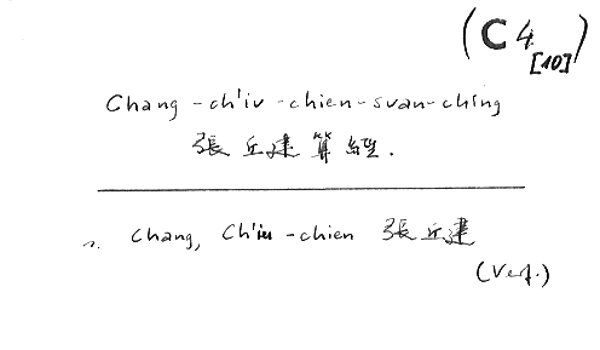 (C 4 [10])
Chang-ch'iu-chien-suan-ching
張丘建算經.
Chang, Ch'iu-chien 張丘建
(Verf.)